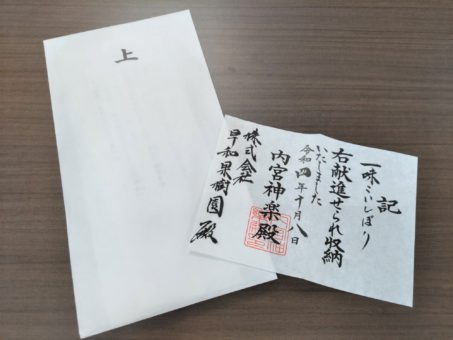 上
記
一味こいしぼり
右献進せられ収納
いたしました
令和四年十月八日
内宮神楽殿
株式会社
早和果樹園殿